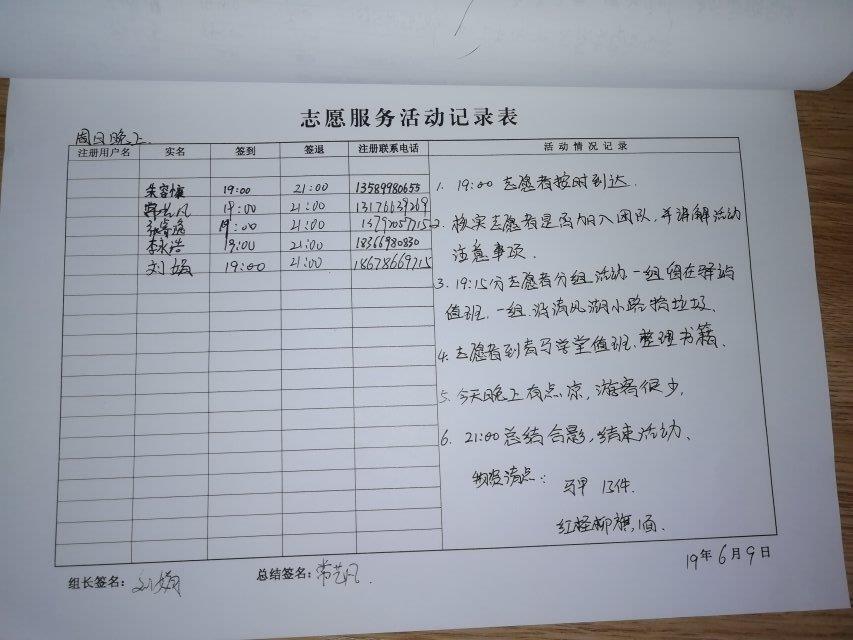 志愿服务活动记录表
周日晚上.
注册用户名 实名 签到 签退 注册联系电话 活动情况记录
19:00 21:00 13589980655
19:00 21:00 13176639269
19:00 21:00 13792057715
李永浩 19:00 21:00 18366980830
刘娟 19:00 21:00 18678669715
1. 19:00 志愿者按时到达.
2. 核实志愿者是否加入团队,并讲解活动
注意事项.
3. 19:15分志愿者分组活动一组留在驿站
值班,一组沿清风湖小路捡垃圾、
4. 志愿者到青马学堂值班、整理书籍、
5. 今天晚上有点凉,游客很少,
6. 21:00总结合影,结束活动、
物资清点: 马甲 13件.
红柽柳旗,1面.
组长签名: 总结签名: 常艺凡.
19年6月9日